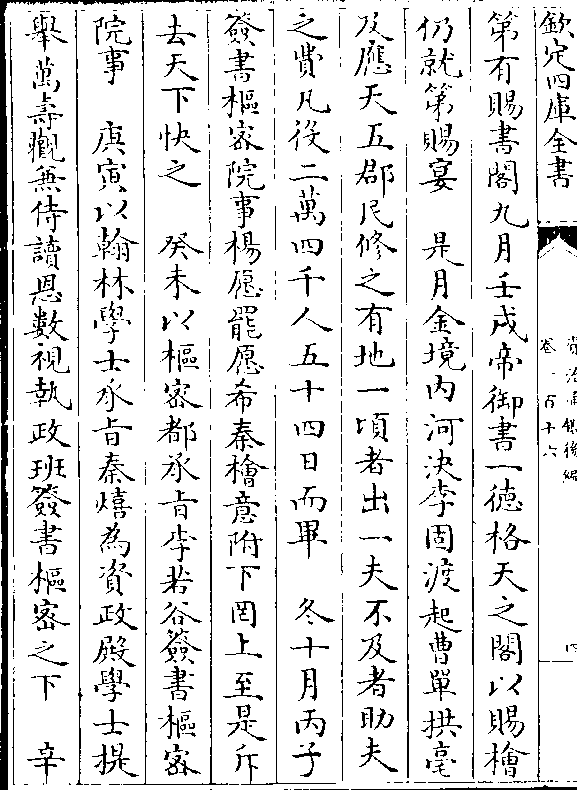 欽定四庫全書
資治通鑑後編
卷一百十六
四
第有賜書閣九月壬戌帝御書一德格天之閣以賜檜
仍就第賜宴　是月金境内河決李固渡起曹單拱亳
及應天五郡民修之有地一頃者出一夫不及者助夫
之費凡役二萬四千人五十四日而畢　冬十月丙子
簽書樞密院事楊愿罷愿希秦檜意附下罔上至是斥
去天下快之　癸未以樞密都承旨李若谷簽書樞密
院事　庚寅以翰林學士承旨秦熺為資政殿學士提
舉萬壽觀兼侍讀恩數視執政班簽書樞密之下　辛